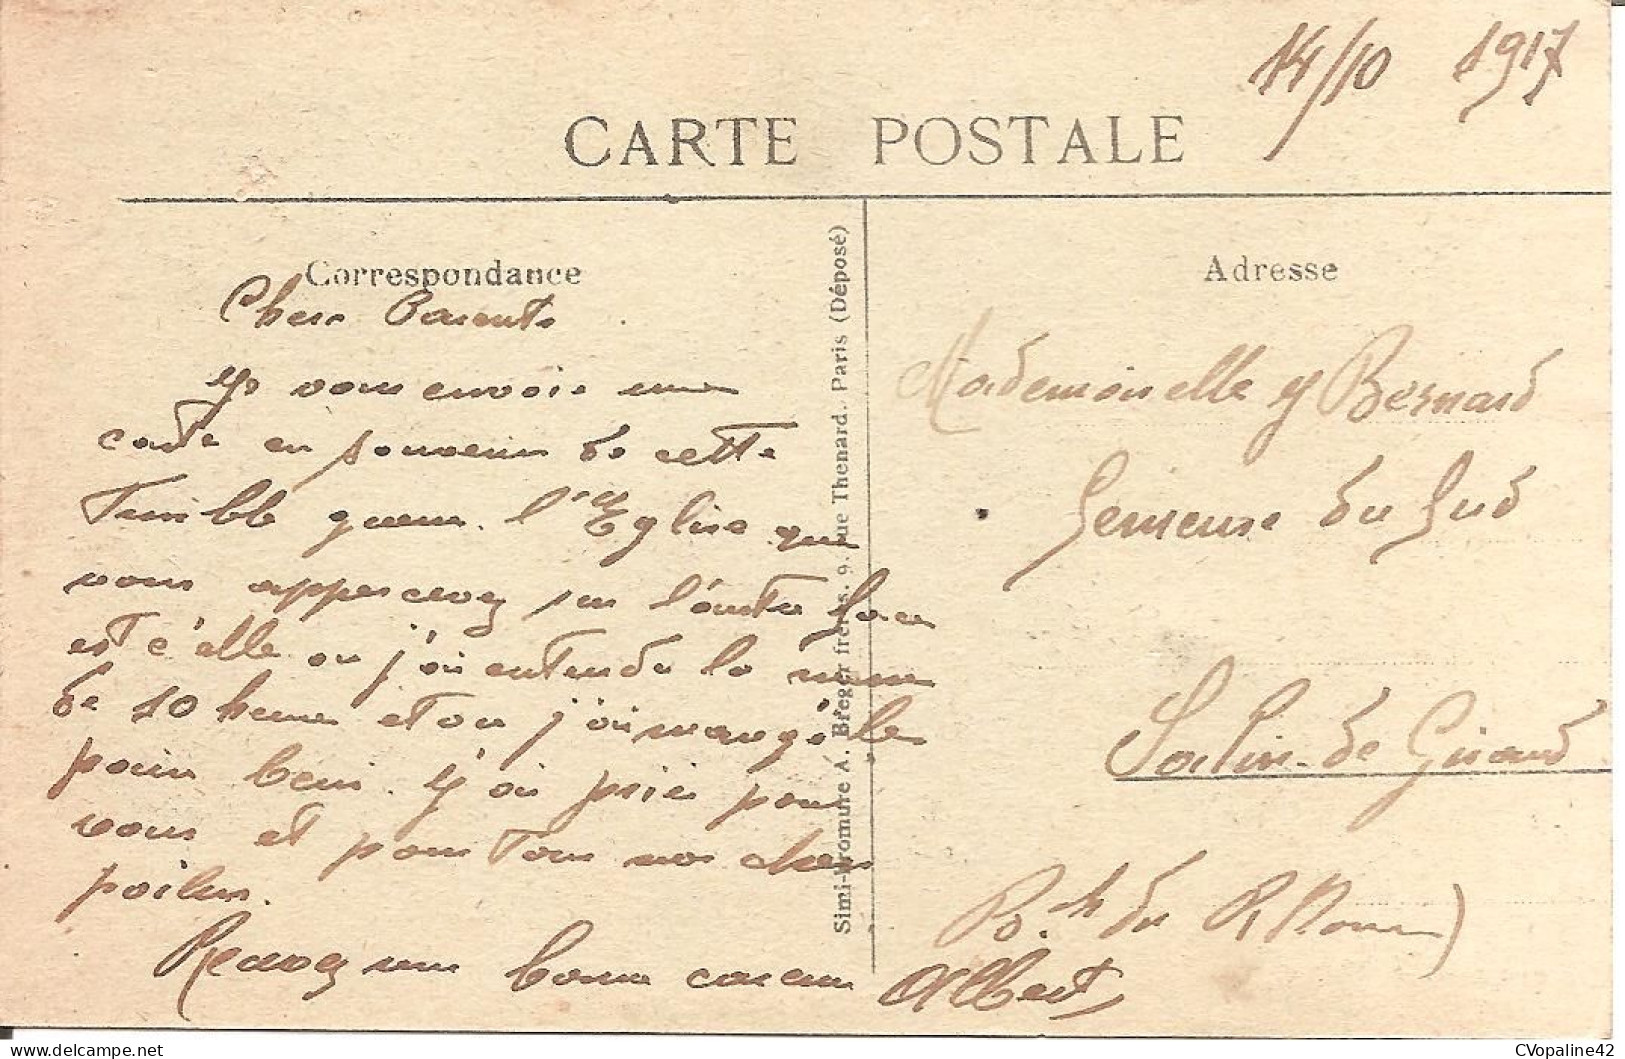 14/10 1917
CARTE POSTALE
Correspondance
Chers Parents
Je vous envoie une
carte en souvenir de cette
terrible guerre. l'Eglise que
vous appercevez sur l'autre face
est c'elle ou j'ai entendu la messe
de 10 heures et ou j'ai mangé le
pain beni. J'ai prier pour
vous et pour tous nos chers
poilus.
Recevez une bonne caresse
Albert
Simi-Bromure A. Breger frères. 9. rue Thenard. Paris (Déposé)
Adresse
Mademoiselle Y Bernard
Semeuse du Sud
Salin-de Giraud
B. ch du Rhone)
CVopaline42